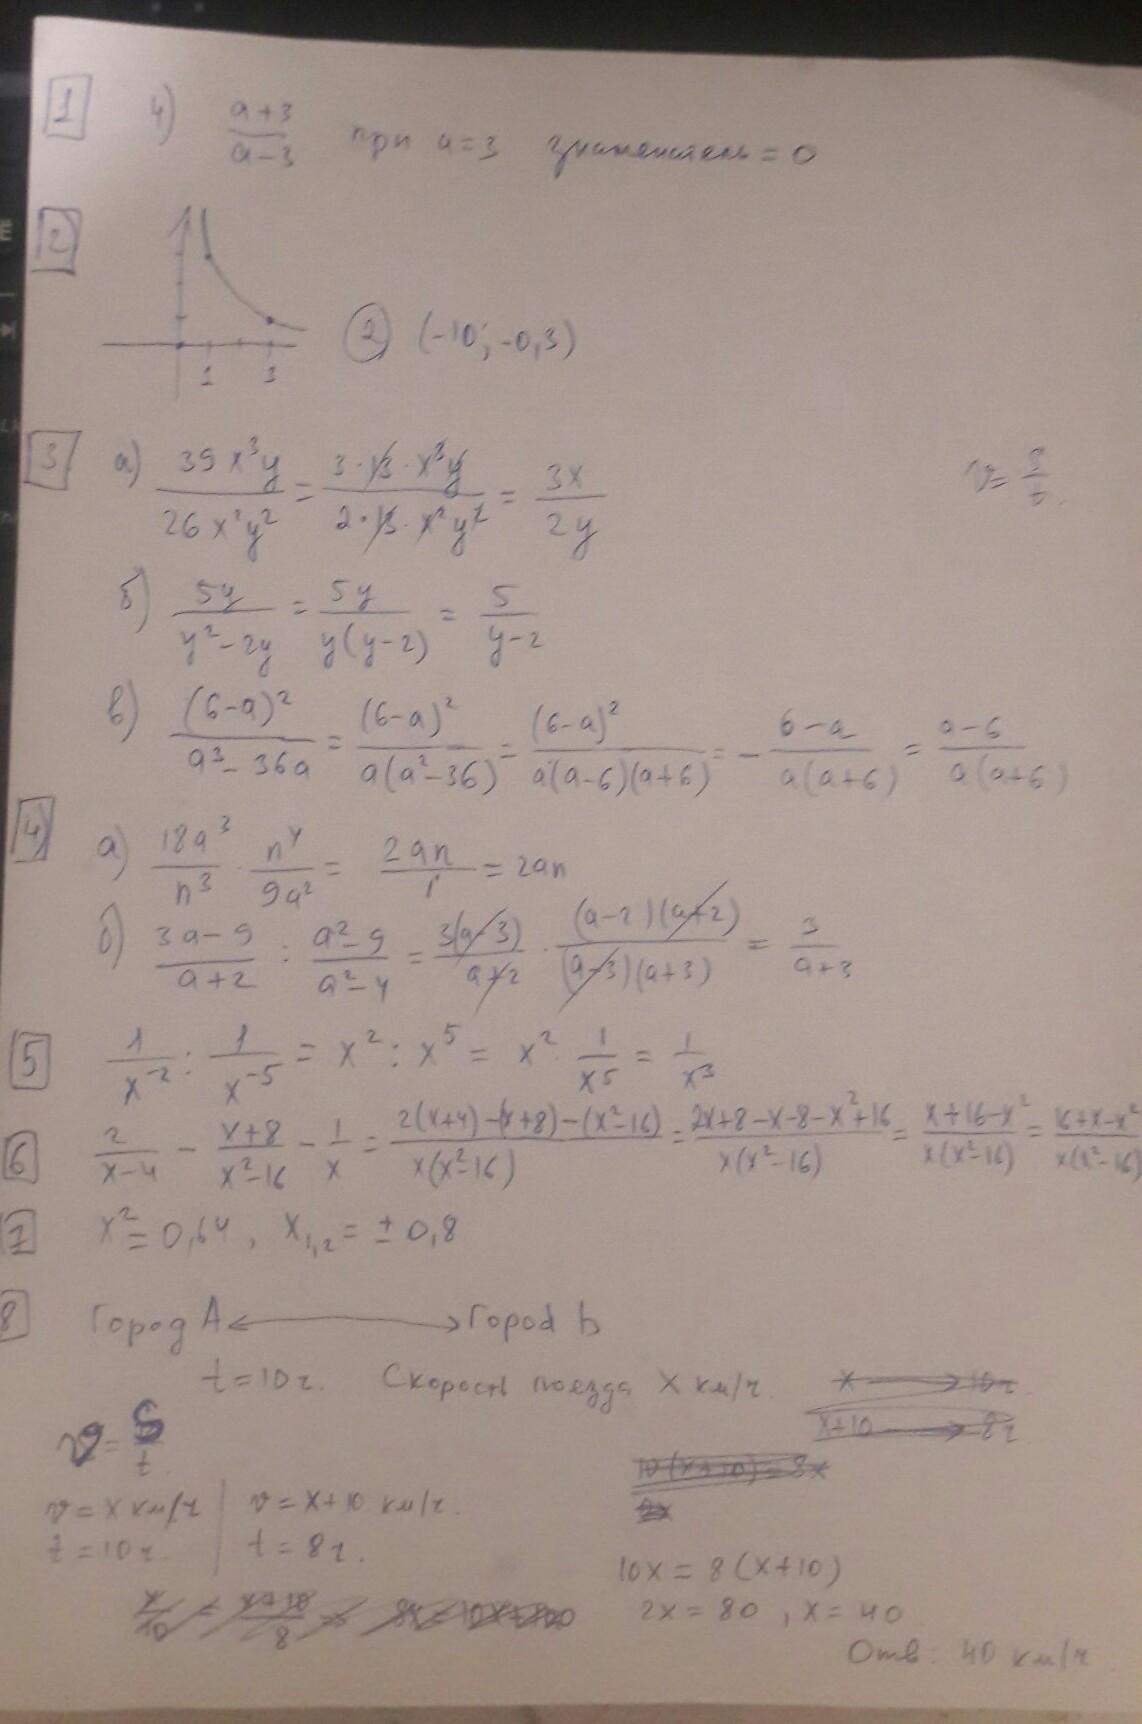 1 4) (a+3)/(a-3) при a=3 знаменатель = 0
2
1 3
2 (-10; -0,3)
3 а) 39x³y/26x²y² = 3·13·x³y/2·13·x²y² = 3x/2y
v = S/t
б) 5y/(y²-2y) = 5y/y(y-2) = 5/(y-2)
в) (6-a)²/(a³-36a) = (6-a)²/a(a²-36) = (6-a)²/a(a-6)(a+6) = - (6-a)/a(a+6) = (a-6)/a(a+6)
4 а) 18a³/n³ · n⁴/9a² = 2an/1 = 2an
б) (3a-9)/(a+2) : (a²-9)/(a²-4) = 3(a-3)/(a+2) · (a-2)(a+2)/(a-3)(a+3) = 3/(a+3)
5 1/x⁻² : 1/x⁻⁵ = x² : x⁵ = x² · 1/x⁵ = 1/x³
6 2/(x-4) - (x+8)/(x²-16) - 1/x = (2(x+4)-(x+8)-(x²-16))/x(x²-16) = (2x+8-x-8-x²+16)/x(x²-16) = (x+16-x²)/x(x²-16) = (16+x-x²)/x(x²-16)
7 x² = 0,64, x₁,₂ = ± 0,8
8 Город А ⟷ Город b
t = 10 ч. Скорость поезда x км/ч.
x → 10 ч.
x+10 → 8 ч
v = S/t
10(x+10) = 8x
2x
v = x км/ч | v = x+10 км/ч.
t = 10 ч. | t = 8 ч.
10x = 8(x+10)
x/10 = (x+10)/8
2x = 80, x = 40
Отв: 40 км/ч